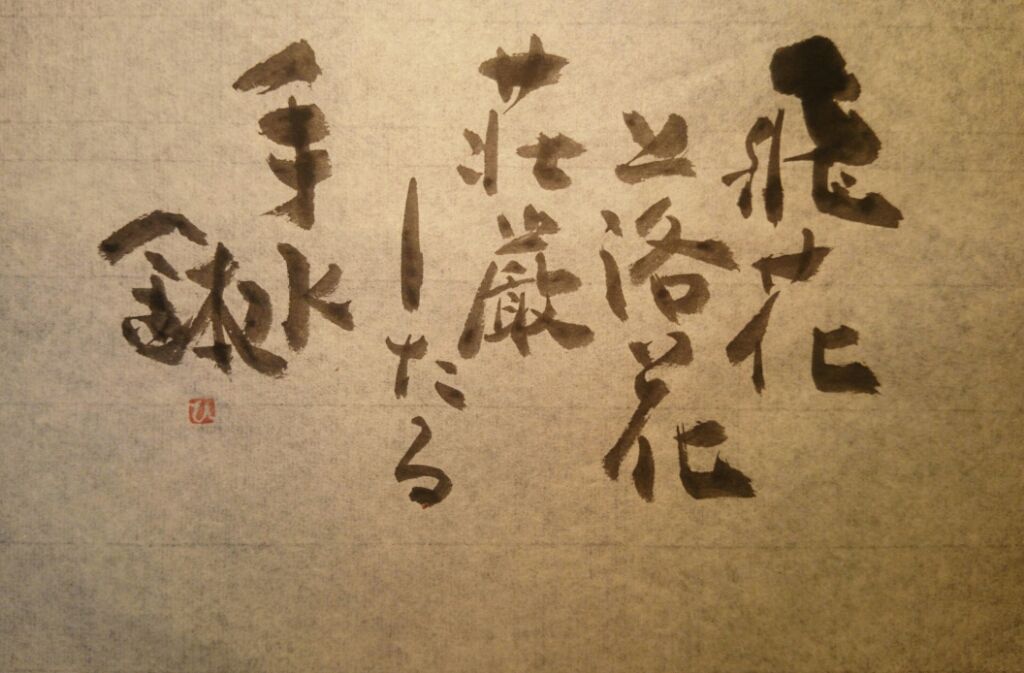 飛花
落花
荘厳
したる
手水
鉢
ひ